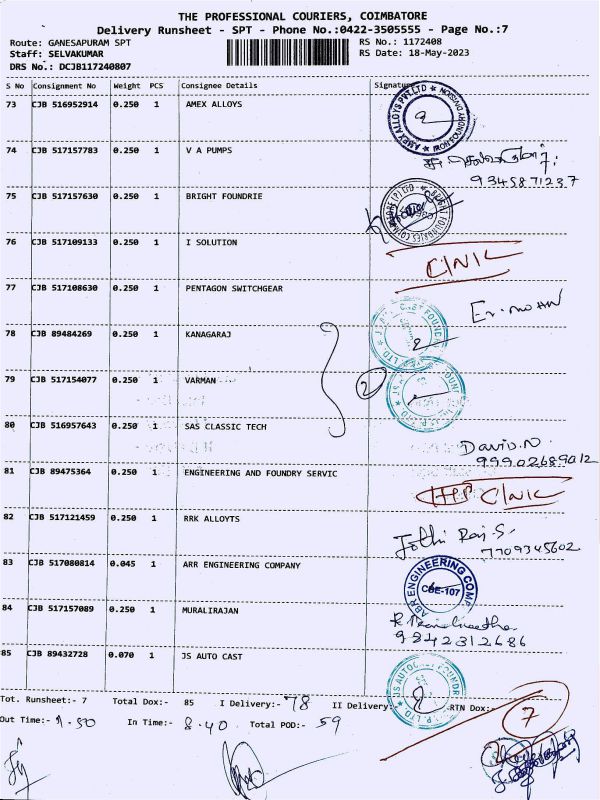 THE PROFESSIONAL COURIERS, COIMBATORE
Delivery Runsheet - SPT - Phone No.:0422-3505555 - Page No.:7
Route: GANESAPURAM SPT RS No.: 1172408
Staff: SELVAKUMAR RS Date: 18-May-2023
DRS No.: DCJB117240807
S No Consignment No Weight PCS Consignee Details Signature
73 CJB 516952914 0.250 1 AMEX ALLOYS
AMEX ALLOYS PVT.LTD
74 CJB 517157783 0.250 1 V A PUMPS
9345871237
75 CJB 517157630 0.250 1 BRIGHT FOUNDRIE
76 CJB 517109133 0.250 1 I SOLUTION
CINIC
77 CJB 517108630 0.250 1 PENTAGON SWITCHGEAR
78 CJB 89484269 0.250 1 KANAGARAJ
79 CJB 517154077 0.250 1 VARMAN 2
80 CJB 516957643 0.250 1 SAS CLASSIC TECH
David.N
99902689012
81 CJB 89475364 0.250 1 ENGINEERING AND FOUNDRY SERVIC
CINIC
82 CJB 517121459 0.250 1 RRK ALLOYTS
Jothi Raj.S.
7709345602
83 CJB 517080814 0.045 1 ARR ENGINEERING COMPANY
ARR ENGINEERING COMP
CBE-107
84 CJB 517157089 0.250 1 MURALIRAJAN
9842312686
85 CJB 89432728 0.070 1 JS AUTO CAST
JS AUTOCAST FOUNDR
Tot. Runsheet:- 7 Total Dox:- 85 I Delivery:- 78 II Delivery: RTN Dox:- 7
Out Time:- 9.50 In Time:- 8.40 Total POD:- 59